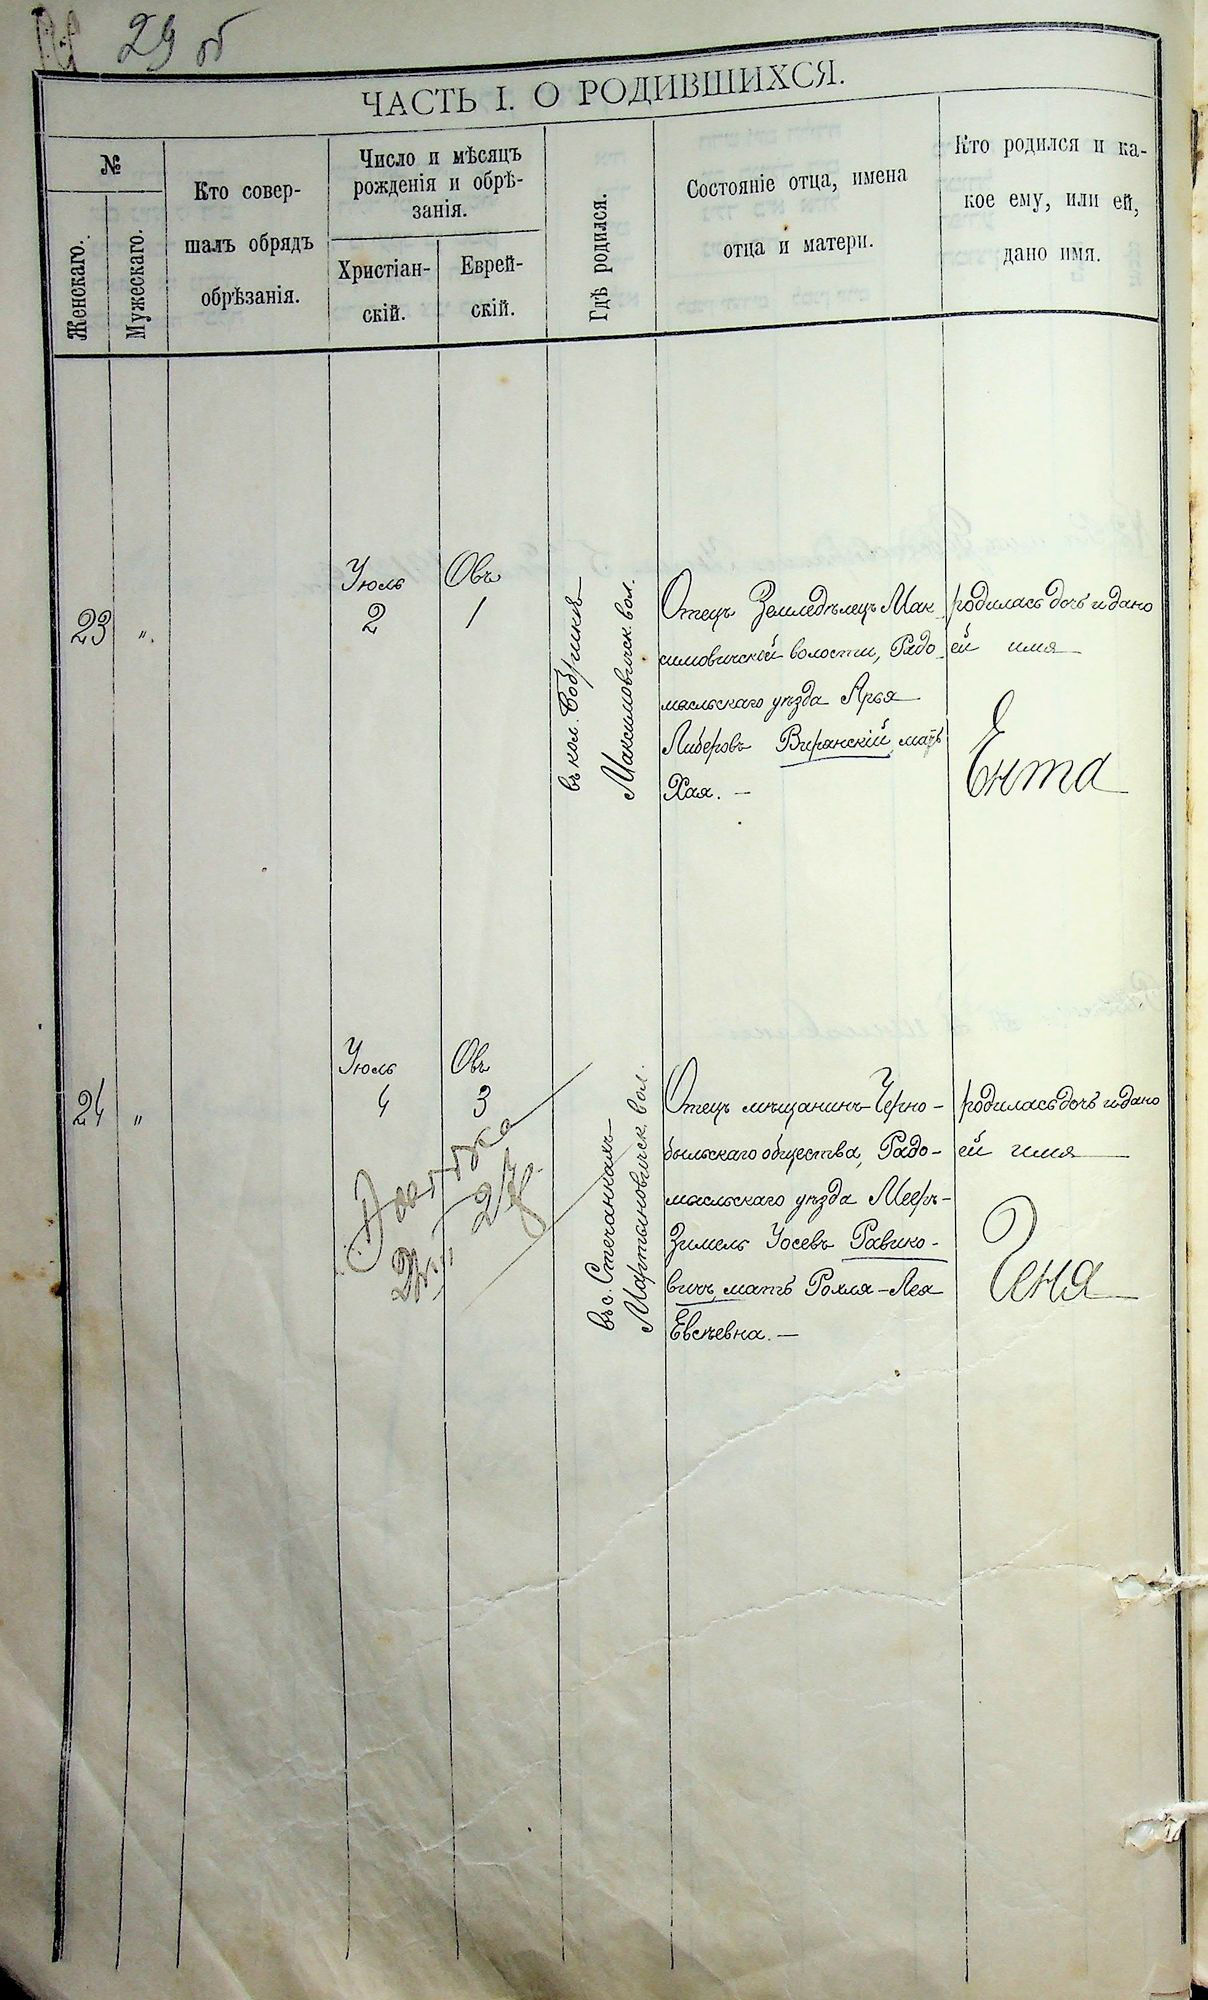 29 об
ЧАСТЬ I. О РОДИВШИХСЯ.
№
Женскаго.
Мужескаго.
Кто совер-
шалъ обрядъ
обрѣзанія.
Число и мѣсяцъ
рожденія и обрѣ-
занія.
Христіан-
скій.
Еврей-
скій.
Гдѣ родился.
Состояніе отца, имена
отца и матери.
Кто родился и ка-
кое ему, или ей,
дано имя.
23
„
Іюль
2
Овъ
1
въ кол.
Максимовичск. вол.
Отецъ Земледѣлецъ Мак-
симовичскій волости, Радо-
мысльскаго уѣзда Арья
Либеровъ Виранскій, мать
Хая. —
родилась дочь и дано
ей имя
Ента
24
„
Іюль
4
Овъ
3
въ с. Стечанкахъ
Мартыновичск. вол.
Отецъ мѣщанинъ Черно-
быльскаго общества, Радо-
мысльскаго уѣзда Мееръ-
Зимель Іосевъ Равико-
вичъ, мать Рохля-Лея
Евсѣевна. —
родилась дочь и дано
ей имя
Геня